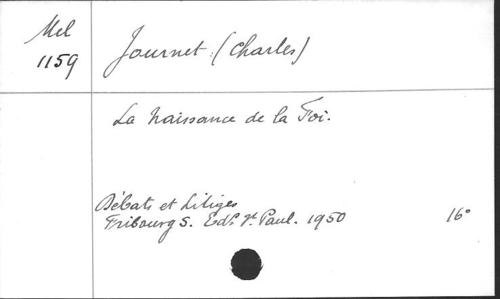 Mel
1159
Journet (Charles)
La Naissance de la Foi.
Débats et Litiges
Fribourg S. Ed. St Paul. 1950 16°